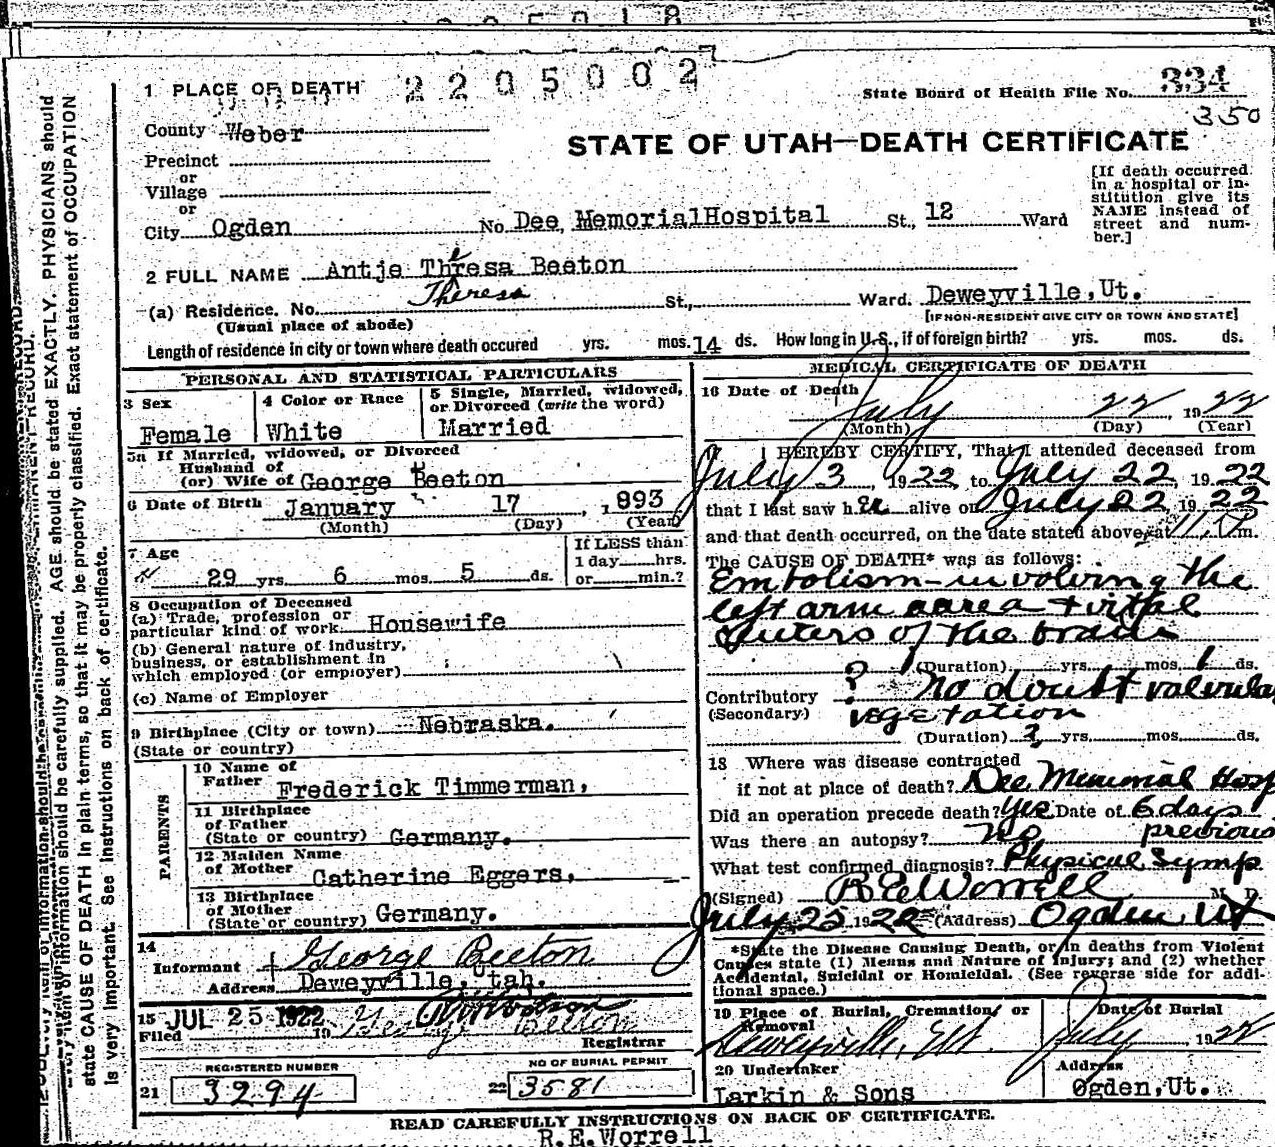 2205002
1 PLACE OF DEATH
State Board of Health File No. 334
350
County Weber
STATE OF UTAH—DEATH CERTIFICATE
Precinct
or
Village
or
City Ogden No. Dee, Memorial Hospital St., 12 Ward
[If death occurred in a hospital or institution give its NAME instead of street and number.]
2 FULL NAME Antje Theresa Beeton
Theresa
(a) Residence. No. St., Ward. Deweyville, Ut.
(Usual place of abode) [IF NON-RESIDENT GIVE CITY OR TOWN AND STATE]
Length of residence in city or town where death occured yrs. mos. 14 ds. How long in U.S., if of foreign birth? yrs. mos. ds.
PERSONAL AND STATISTICAL PARTICULARS
3 Sex Female
4 Color or Race White
5 Single, Married, widowed, or Divorced (write the word) Married
5a If Married, widowed, or Divorced
Husband of
(or) Wife of George Beeton
6 Date of Birth January 17, 1893
(Month) (Day) (Year)
7 Age 29 yrs. 6 mos. 5 ds.
If LESS than 1 day hrs. or min.?
8 Occupation of Deceased
(a) Trade, profession or particular kind of work Housewife
(b) General nature of industry, business, or establishment in which employed (or employer)
(c) Name of Employer
9 Birthplace (City or town) Nebraska.
(State or country)
PARENTS
10 Name of Father Frederick Timmerman,
11 Birthplace of Father (State or country) Germany.
12 Maiden Name of Mother Catherine Eggers,
13 Birthplace of Mother (State or country) Germany.
14
Informant George Beeton
Address Deweyville, Utah.
15 Filed JUL 25 1922 19 George Beeton
Registrar
REGISTERED NUMBER
21 3294
NO OF BURIAL PERMIT
22 3581
MEDICAL CERTIFICATE OF DEATH
16 Date of Death July 22, 1922
(Month) (Day) (Year)
I HEREBY CERTIFY, That I attended deceased from
July 3, 1922 to July 22 1922
that I last saw her alive on July 22, 1922
and that death occurred, on the date stated above, at 11 P.m.
The CAUSE OF DEATH* was as follows:
Embolism-involving the
left arm area + vital
centers of the brain
(Duration) yrs. mos. 1 ds.
Contributory ? No doubt valvular
(Secondary) vegetation
(Duration) 3 yrs. mos. ds.
18 Where was disease contracted
if not at place of death? Dee Memorial Hosp
Did an operation precede death? Yes Date of 6 days
Was there an autopsy? No previous
What test confirmed diagnosis? Physical Symp
(Signed) R E Worrell M. D.
July 25 1922 (Address) Ogden Ut
*State the Disease Causing Death, or in deaths from Violent
Causes state (1) Means and Nature of Injury; and (2) whether
Accidental, Suicidal or Homicidal. (See reverse side for additional space.)
19 Place of Burial, Cremation, or Removal Deweyville, Ut.
Date of Burial July 1922
20 Undertaker Larkin & Sons
Address Ogden, Ut.
READ CAREFULLY INSTRUCTIONS ON BACK OF CERTIFICATE.
R.E.Worrell
information should be carefully supplied. AGE should be stated EXACTLY. PHYSICIANS should
state CAUSE OF DEATH in plain terms, so that it may be properly classified. Exact statement of OCCUPATION
is very important. See instructions on back of certificate.